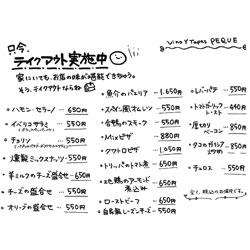 只今、
テイクアウト実施中
家にいても、お店の味が堪能できちゃう。
そう、テイクアウトならね
Vino Y Tapas PEQUE
・ハモン・セラーノ … 650円
・イベリコサラミ … 550円
・チョリソ … 550円
・燻製ミックスナッツ … 550円
・羊ミルクのチーズ盛合せ … 650円
・チーズの盛合せ … 550円
・オリーブの盛合せ … 550円
・魚介のパエリア … 1,650円
・スペイン風オムレツ … 550円
・合鴨のスモーク … 550円
・Mixピザ … 880円
・クワトロピザ … 1,050円
・トリッパのトマト煮 … 650円
・地鶏のアーモンド煮込み … 650円
・ローストビーフ … 650円
・白黒レーズンチーズ … 550円
・レバーパテ … 550円
・トマトガーリックトースト … 440円
・厚切りベーコン … 850円
・タコのガリシア炒め … 850円
・チュロス … 550円
全て、税込のお値段です。